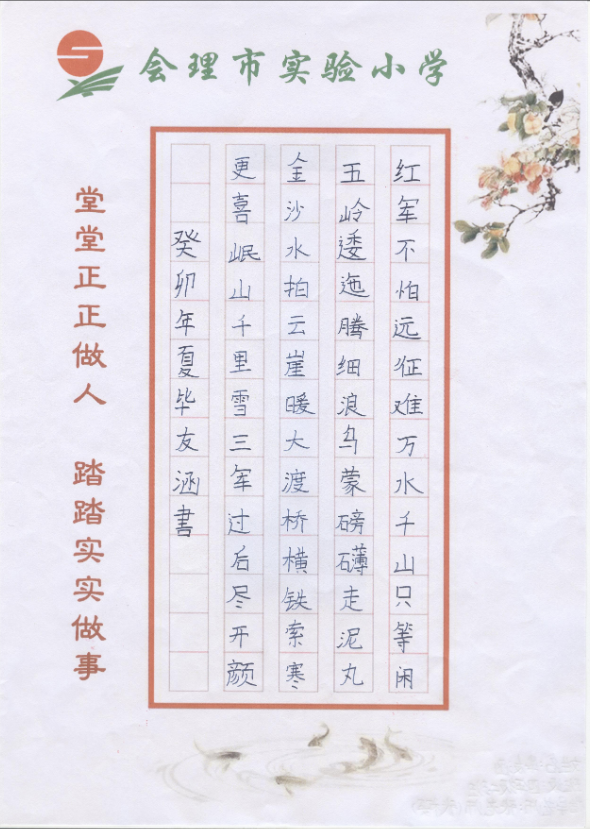 会理市实验小学
红军不怕远征难万水千山只等闲
五岭逶迤腾细浪乌蒙磅礴走泥丸
金沙水拍云崖暖大渡桥横铁索寒
更喜岷山千里雪三军过后尽开颜
癸卯年夏毕友涵書
堂堂正正做人 踏踏实实做事